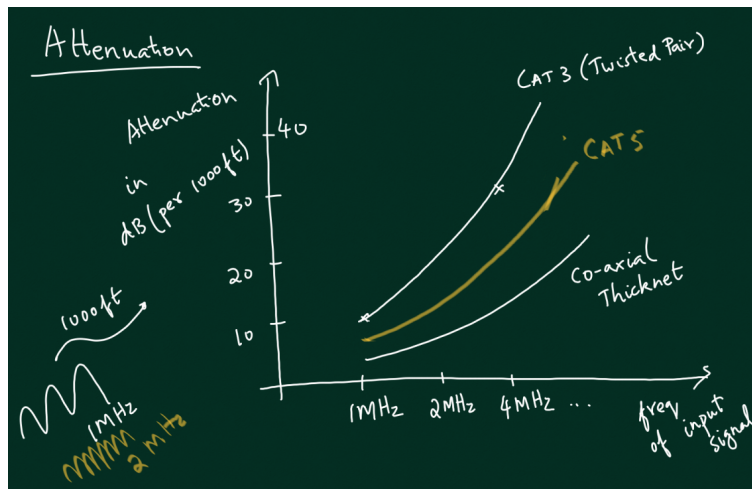 Attenuation
Attenuation
in
dB (per 1000ft)
40
30
20
10
CAT 3 (Twisted Pair)
CAT5
Co-axial
Thicknet
1MHz
2MHz
4MHz
...
freq
of input
signal
1000ft
1MHz
2 MHz